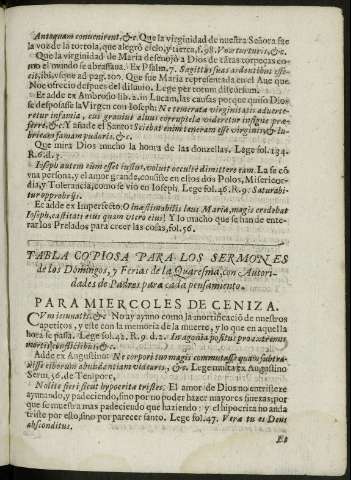 Antequam convenirent, &c. Que la virginidad de nuestra Señora fue
la voz de la tortola, que alegrò cielo, y tierra, f. 98. Vox turturis, &c.
Que la virginidad de Maria desenojò a Dios de tātas torpeças co-
mo el mundo se abrassaua. Ex Psalm. 7. Sagittas suas ardentibus effe-
cit, ibi, vsque ad pag. 109. Que fue Maria representada en el Aue que
Noe ofrecio despues del diluuio. Lege per totum discursum.
Et adde ex Ambrosio lib. 2. in Lucam, las causas porque quiso Dios
se desposasse la Virgen con Ioseph: Ne temerata virginitatis aduere-
retur infamia, cui grauius aluus corruptela videretur insigne præ-
ferre, &c. Y añade el Santo: Sciebat enim teneram esse virginis, & lu-
bricam famam pudoris, &c.
Que mira Dios mucho la honra de las donzellas. Lege fol. 134.
R. 6. d. 3.
Ioseph autem cum esset iustus, voluit occultè dimittere eam. La fe cō
vna persona, y el amor grande, consiste en ellos dos Polos, Misericor-
dia, y Tolerancia, como se vio en Ioseph. Lege fol. 46. R. 9. Saturabi-
tur opprobrijs.
Et adde ex Imperfecto: O inæstimabilis laus Mariæ, magis credebat
Ioseph, castitati eius quam vtero eius! Y lo mucho que se han de ente-
rar los Prelados para creer las cosas, fol. 56.
TABLA COPIOSA PARA LOS SERMONES
de los Domingos, y Ferias de la Quaresma, con Autori-
dades de Padres para cada pensamiento.
PARA MIERCOLES DE CENIZA.
CVm ieiunatis, &c. No ay ayuno como la mortificaciō de nuestros
apetitos, y este con la memoria de la muerte, y lo que en aquella
hora se passa. Lege fol. 42. R. 9. d. 2. In agonia positus pro extremis
mortis conflictibus, &c.
Adde ex Augustino: Ne corpori tuo magis commutasse quàm subtra-
xisse ciborum abundantiam videaris, &c. Lege multa ex Augustino
Serm. 56. de Tempore.
Nolite fieri sicut hypocritæ tristes. El amor de Dios no entristeze
ayunando, y padeciendo, sino por no poder hazer mayores finezas; por
que se muestra mas padeciendo que haziendo: y el hipocrita no anda
triste por esto, sino por parecer santo. Lege fol. 47. Vere tu es Deus
absconditus.
Et